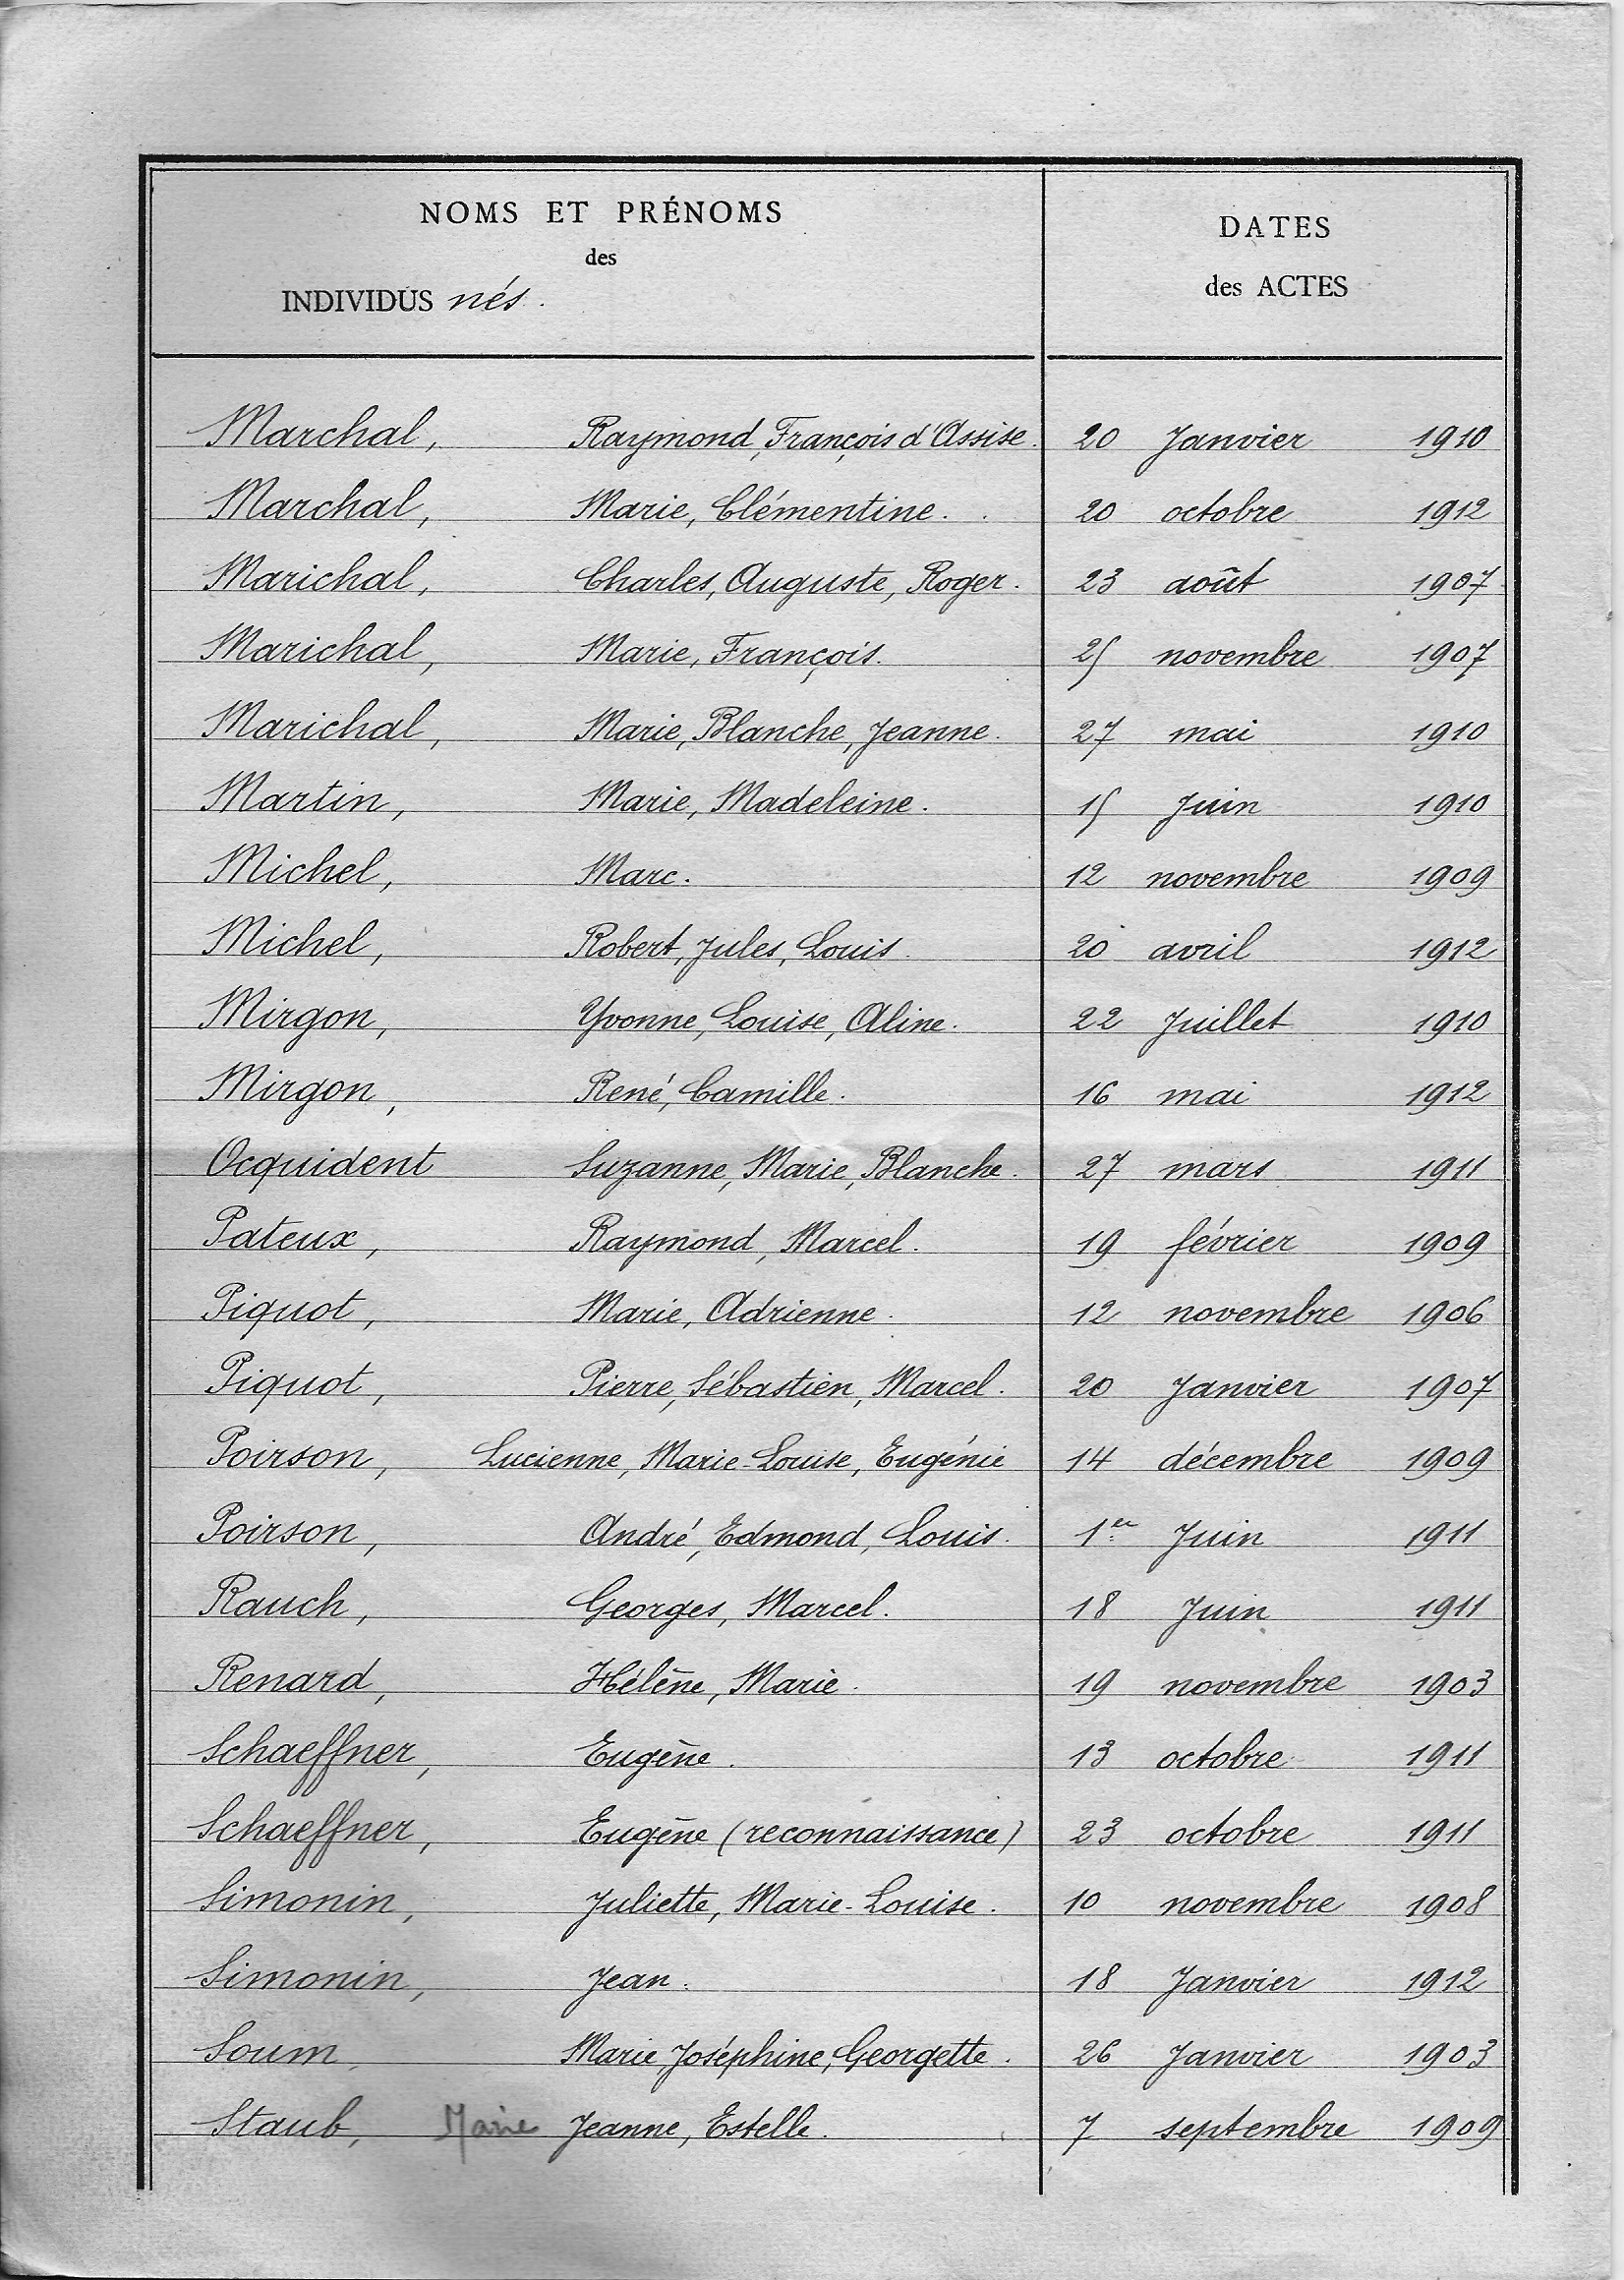 NOMS ET PRÉNOMS
des
INDIVIDUS nés.
DATES
des ACTES
Marchal, Raymond, François d'Assise. 20 Janvier 1910
Marchal, Marie, Clémentine. 20 octobre 1912
Marichal, Charles, Auguste, Roger. 23 août 1907
Marichal, Marie, François. 25 novembre 1907
Marichal, Marie, Blanche, Jeanne. 27 mai 1910
Martin, Marie, Madeleine. 15 Juin 1910
Michel, Marc. 12 novembre 1909
Michel, Robert, Jules, Louis. 20 avril 1912
Mirgon, Yvonne, Louise, Aline. 22 Juillet 1910
Mirgon, René, Camille. 16 mai 1912
Ocquident Suzanne, Marie, Blanche. 27 mars 1911
Pateux, Raymond, Marcel. 19 février 1909
Piquot, Marie, Adrienne. 12 novembre 1906
Piquot, Pierre, Sébastien, Marcel. 20 Janvier 1907
Poirson, Lucienne, Marie-Louise, Eugénie 14 décembre 1909
Poirson, André, Edmond, Louis. 1er Juin 1911
Rauch, Georges, Marcel. 18 Juin 1911
Renard, Hélène, Marie. 19 novembre 1903
Schaeffner, Eugène. 13 octobre 1911
Schaeffner, Eugène (reconnaissance) 23 octobre 1911
Simonin, Juliette, Marie-Louise. 10 novembre 1908
Simonin, Jean. 18 Janvier 1912
Soum, Marie, Joséphine, Georgette. 26 Janvier 1903
Staub, Marie Jeanne, Estelle. 7 septembre 1909